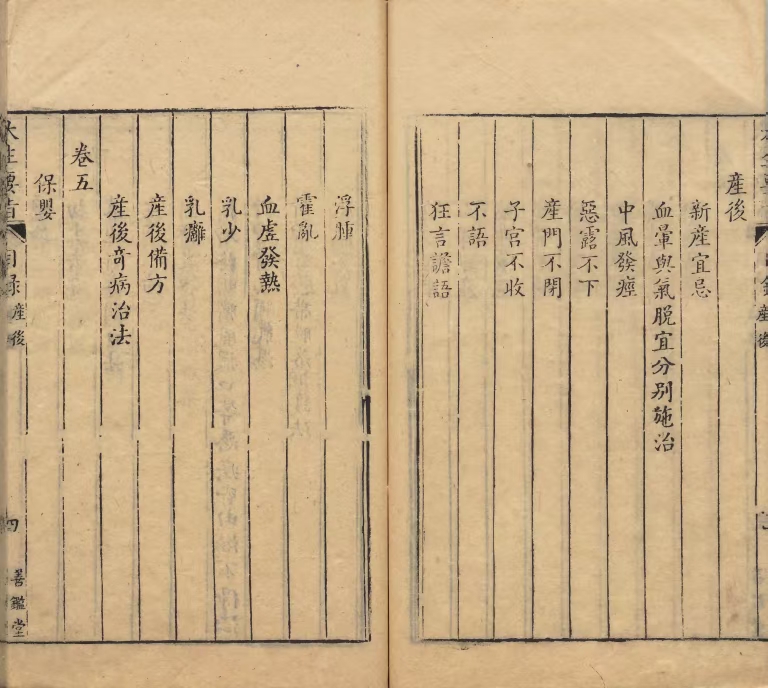 産後
新産宜忌
血暈與氣脱宜分别施治
中風發痙
惡露不下
産門不閉
子宮不收
不語
狂言譫語
浮腫
霍亂
血虛發熱
乳少
乳癰
産後備方
産後奇病治法
卷五
保嬰
大生要旨 目録 産後 四 善鑑堂